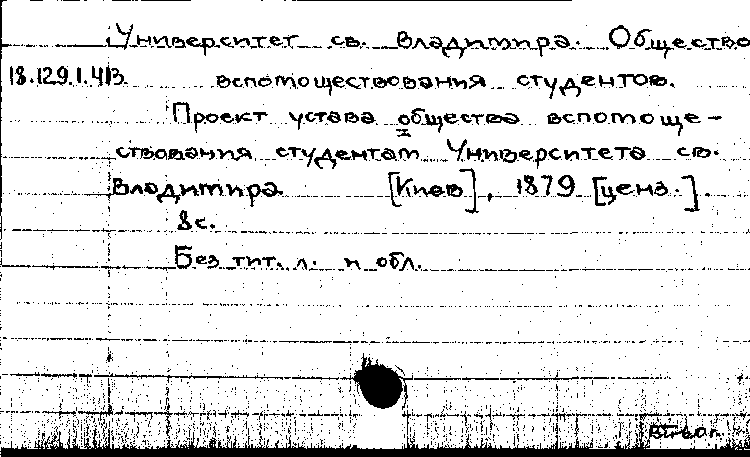 Университет св. Владимира. Общество
18.129.1.413 вспомоществования студентов.
Проект устава общества вспомоще-
ствования студентам Университета св.
Владимира. [Киев], 1879 [ценз.].
8 с.
Без тит. л. и обл.